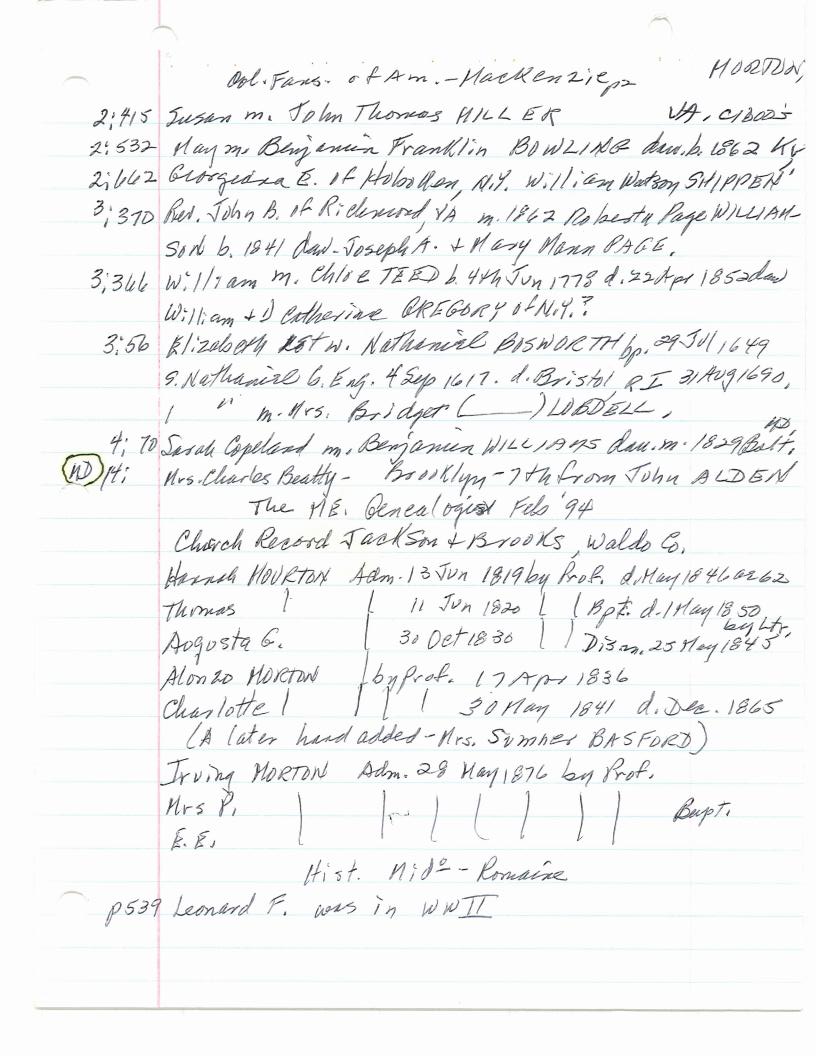 MORTON,
Col. Fams. of Am. - MacKenzie
VA, CIBOD'S
2;415 Susan m. John Thomas MILLER
2:532 May m. Benjamin Franklin BOWLING dau. b. 1862 Ky
2;662 Georgeana E. of Hoboken, N.Y. William Watson SHIPPEN
3;370 Rev. John B. of Richmond, VA m. 1862 Roberta Page WILLIAM-
SON b. 1841 dau-Joseph A. + Mary Mann PAGE.
3;366 William m. Chloe TEED b. 4th Jun 1778 d. 22 Apr 1852 dau
William + Catherine GREGORY of N.Y.?
3;56 Elizabeth 1st w. Nathaniel BOSWORTH bp. 29 Jul 1649
S. Nathaniel b. Eng. 4 Sep 1617. d. Bristol RI 31 Aug 1690,
" m. Mrs. Bridget (____) LOBDELL.
MD
4; 70 Sarah Copeland m. Benjamin WILLIAMS dau. m. 1829 Balt.
MD 4; Mrs. Charles Beatty - Brooklyn - 7th from John ALDEN
The ME. Genealogist Feb '94
Church Record Jackson + Brooks, Waldo Co.
Hannah MOURTON Adm. 13 Jun 1819 by Prof. d. May 1846 ae 62
Thomas | | 11 Jun 1820 | | Bpt. d. 1 May 1850
by Ltr.
Augusta G. | 30 Oct 1830 | | Dism. 25 May 1845
Alonzo MORTON | by Prof. 17 Apr 1836
Charlotte | | | | 30 May 1841 d. Dec. 1865
(A later hand added - Mrs. Sumner BASFORD)
Irving MORTON Adm. 28 May 1876 by Prof.
Mrs P. | | | | | | | Bapt.
E. E.
Hist. Mid° - Romaine
p539 Leonard F. was in WWII